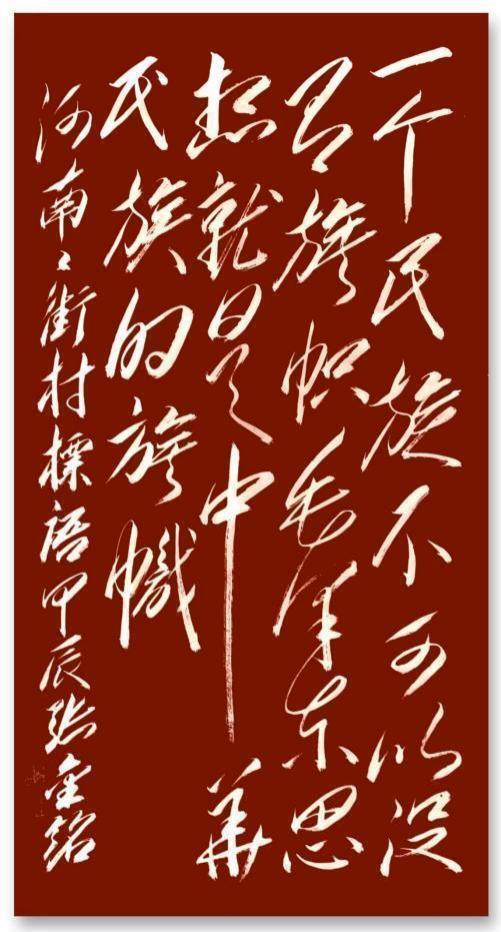 一个民族不可以没
有旗帜毛泽东思
想就是中华
民族的旗幟
河南南街村標語甲辰张金銘